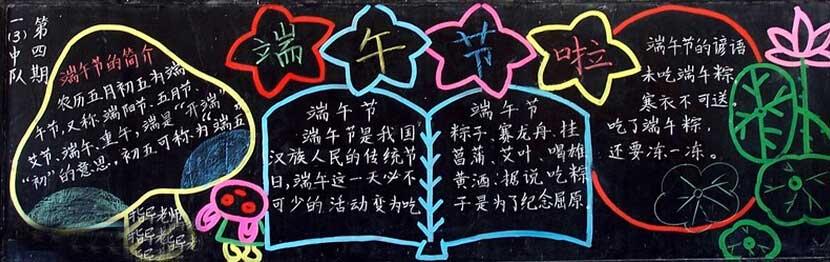 第四期
一(3)中队
端午节啦
端午节的简介
农历五月初五为端
午节,又称端阳节、五月节、
艾节、端午、重午,端是“开端”
“初”的意思。初五可称为“端五”
指导老师
端午节
端午节是我国
汉族人民的传统节
日,端午这一天必不
可少的活动变为吃
端午节
粽子、赛龙舟、挂
菖蒲、艾叶、喝雄
黄酒;据说吃粽
子是为了纪念屈原
端午节的谚语
未吃端午粽,
寒衣不可送。
吃了端午粽,
还要冻一冻。